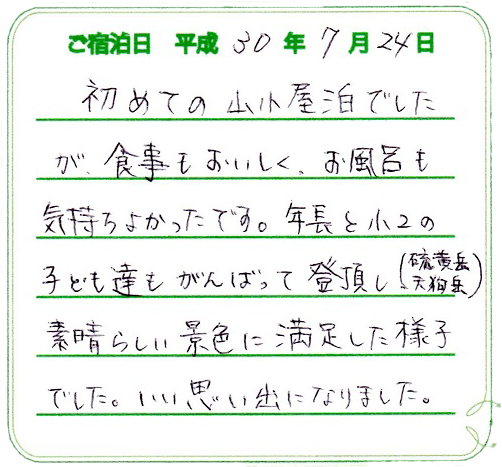 ご宿泊日 平成 30 年 7 月 24 日
初めての山小屋泊でした
が、食事もおいしく、お風呂も
気持ちよかったです。年長と小2の
子ども達もがんばって登頂し(硫黄岳 天狗岳)
素晴らしい景色に満足した様子
でした。いい思い出になりました。